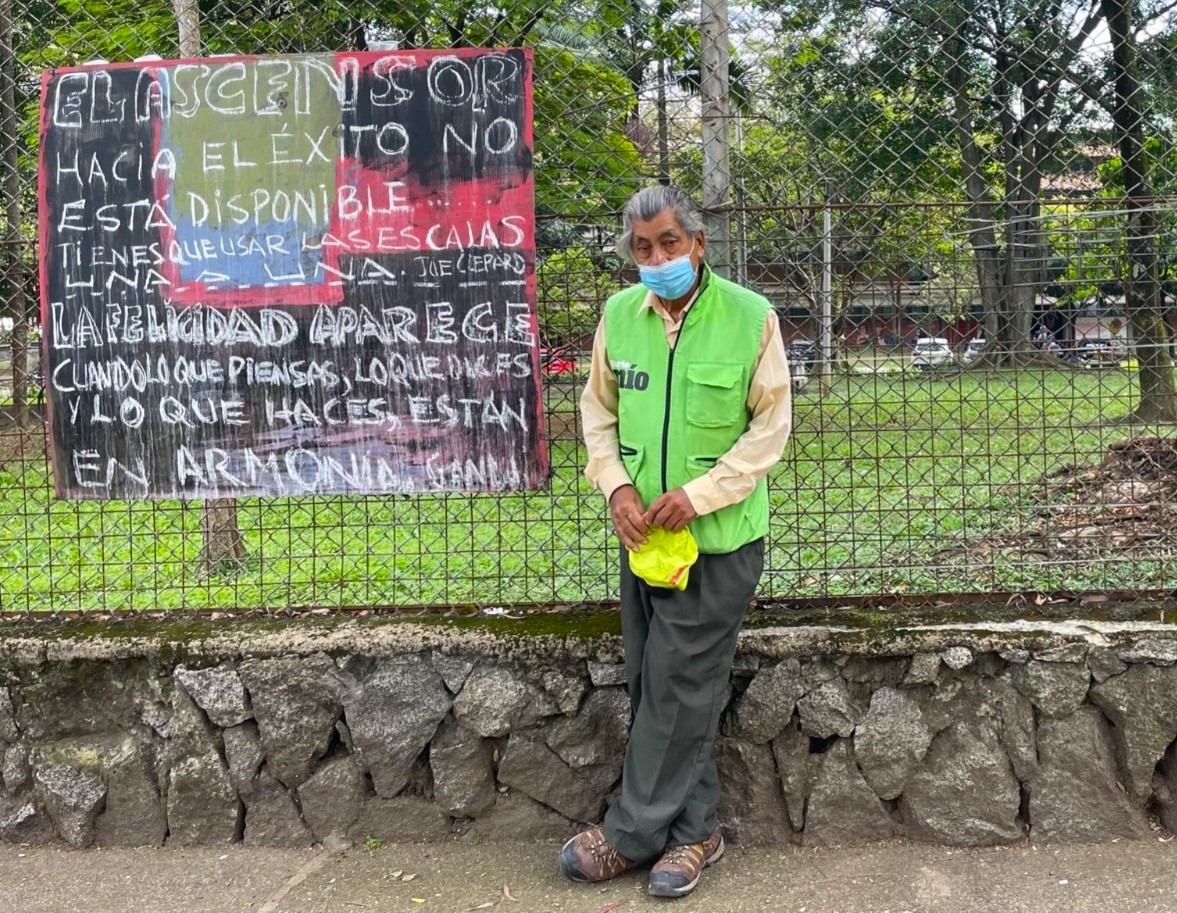 EL ASCENSOR
HACIA EL ÉXITO NO
ESTÁ DISPONIBLE......
TIENES QUE USAR LAS ESCALAS
UNA A UNA. JOE CLEPARD
LA FELICIDAD APARECE
CUANDO LO QUE PIENSAS, LO QUE DICES
Y LO QUE HACES, ESTÁN
EN ARMONÍA.